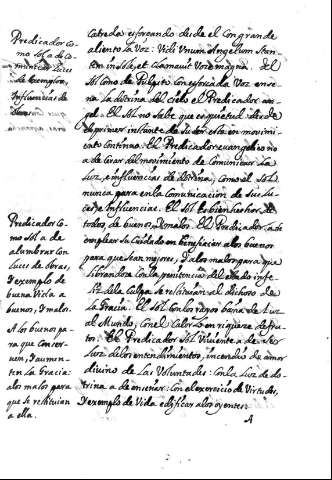 Predicador Co-
mo Sol a de Co-
municar Luces
de exemplos,
Influencias de
Cateda esforcando desde el Con grande
aliento la Voz: Vidi Vnum Angelum Stan-
tem in Sole, et Clamauit Voce magna. del
Sol Como de Pulpito Con esforcada Voz ense-
na la dotrina del Cielo el Predicador an-
gel. El Sol no Sabe que es quietud: desde
el primer instante de Su Ser esta en movimi-
ento Continuo: El Predicador evangelico no
a de Cesar del movimiento de Comunicar La
Luz, e influencias de dotrina, Como el Sol
nunca para en la Comunicacion de Sus Lu-
ces, e Influencias. El Sol es bien hechor de
todos, de buenos, y malos. El Predicador a de
emplear Su Cuidado en beneficiar a los buenos
para que Sean mejores, y a los malos para que
librandose Con la penitencia del estado infe-
liz de la Culpa Se restituian al dichoso de
la Gracia. El Sol Con los rayos baña de Luz
al Mundo, Con el Calor Le enriqueze de fru-
tos: El Predicador Sol Viviente a de Ser
Luz de los entendimientos, incendio de amor
divino de Las Voluntades: Con la Luz de do-
trina a de enseñar: Con el exercicio de Virtudes,
y exemplo de Vida edificar a los oyentes.
A
Predicador Co-
mo Sol a de
alumbrar Con
luces de obras,
y exemplo de
buena Vida a
buenos, y malos.
A los buenos pa-
ra que Conser-
ven, y aumen-
ten la Gracia:
a los malos para
que Se restituian
a ella.